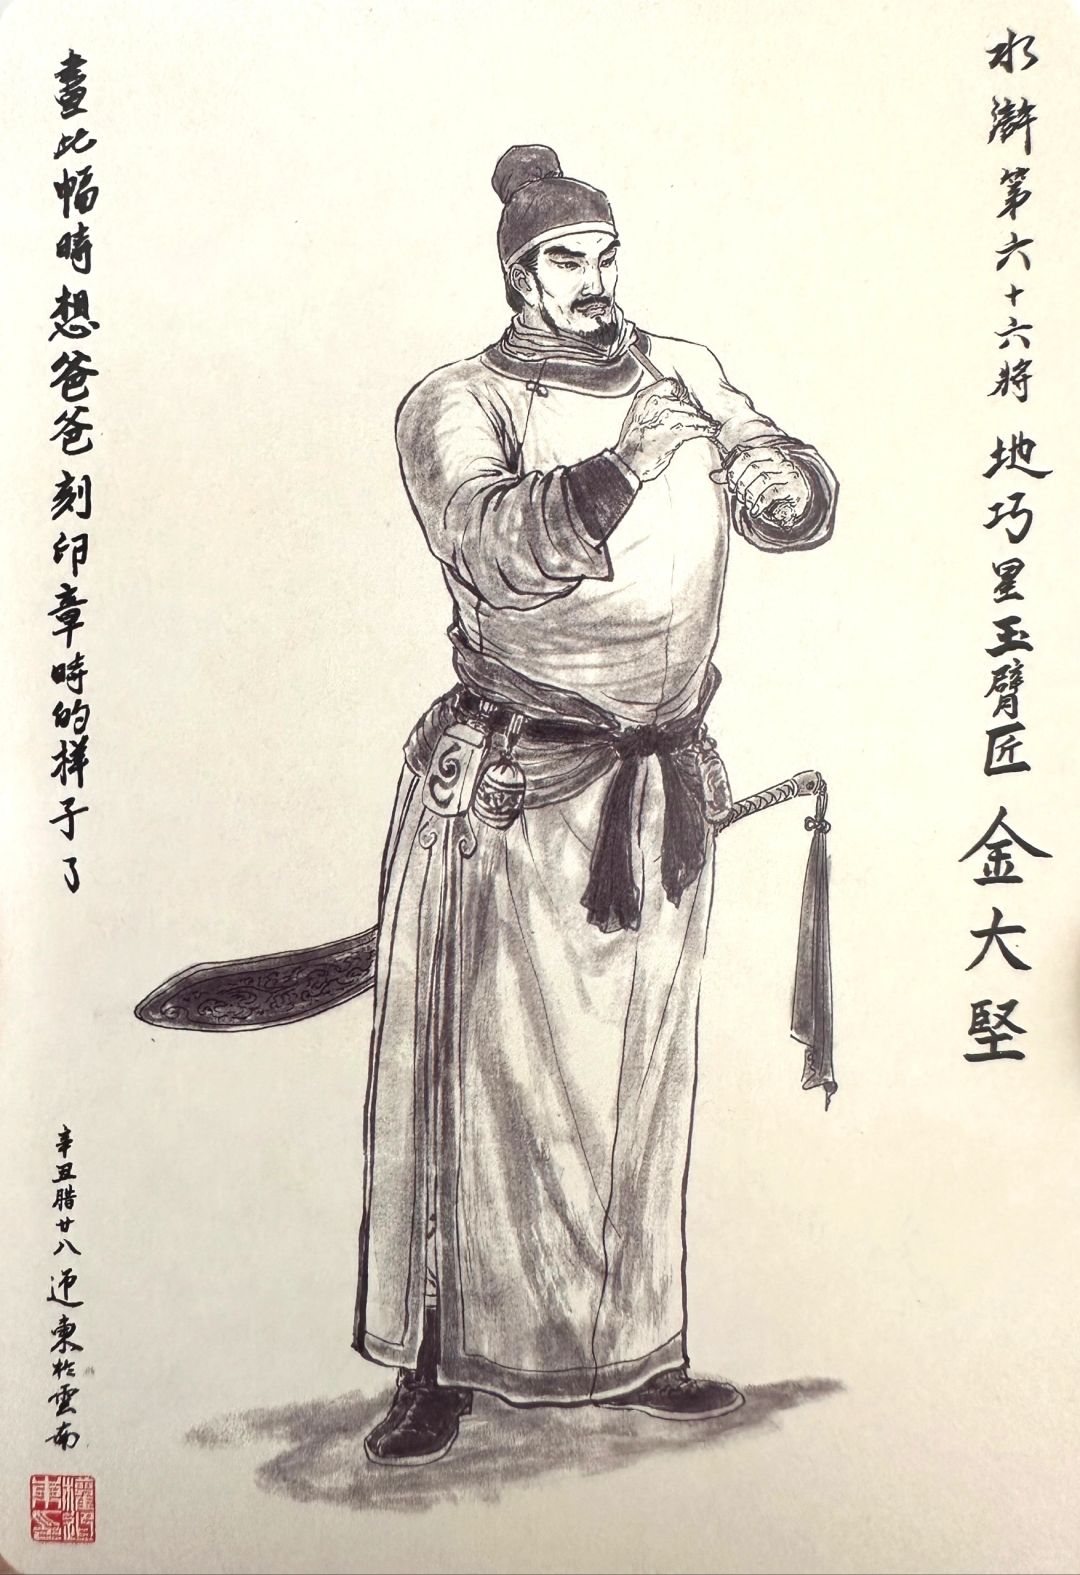 水滸第六十六將 地巧星玉臂匠 金大堅
畫此幅時想爸爸刻印章時的样子了
辛丑腊廿八 迎東於雲南